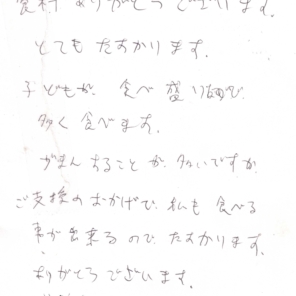 食料 ありがとうございます。
とても たすかります。
子どもが、食べ盛りなので
多く 食べます。
がまん することが 多いですが
ご支援のおかげで、私も 食べる
事が出来るので、たすかります。
ありがとうございます。